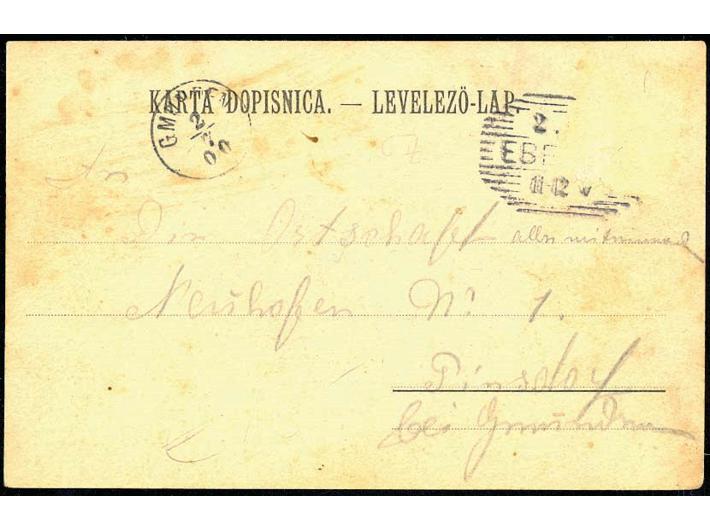 KARTA DOPISNICA. — LEVELEZŐ-LAP.
GM
2/7
00
2.
EBE
An
Die Ortschaft alle mitsammen
Neuhofen No 1.
Pinsdorf
bei Gmunden